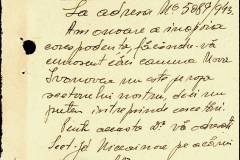 La adresa No 5089/943.
Am onoare a înapoia
corespondența făcându-vă
cunoscut că comuna Nova
Ivanovca nu este pe raza
sectorului nostru, deci nu
putem întreprinde cercetări.
Pentru aceasta vă
Șect. Jd. pe acel